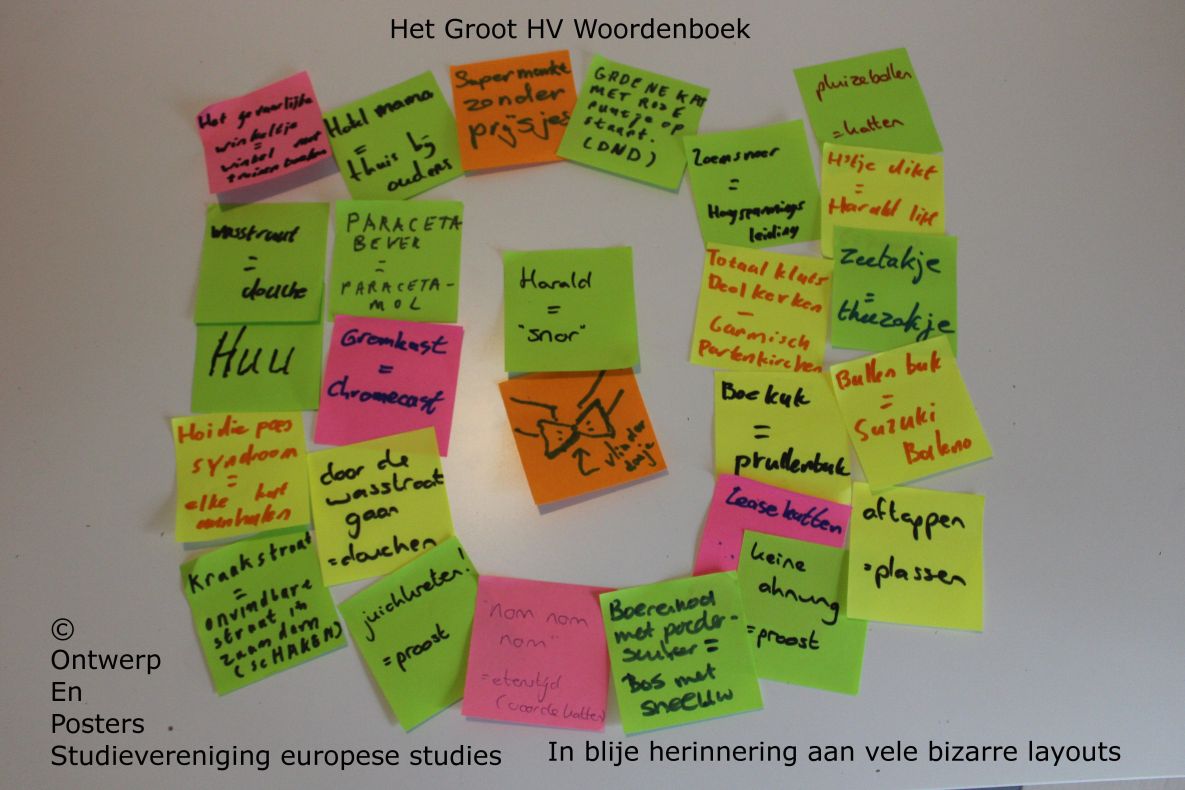 Het Groot HV Woordenboek
Het gevaarlijke
winkeltje
=
winkel met
Hotel mama
=
thuis bij
ouders
Supermarkt
zonder
prijsjes
GROENE KAT
MET ROZE
PUNTJE OP
STAART.
(DND)
Zoemsnoer
=
Hoogspannings
leiding
pluizebollen
=katten
H'tje dikt
=
Harald lijt
wasstraat
=
douche
PARACETA
BEVER
=
PARACETA-
MOL
Harald
=
"snor"
Totaal kluts
Deol kerken
=
Garmisch
Partenkirchen
zeetakje
=
theezakje
HUU
Gromkast
=
Chromecast
vlinder
dasje
Boekuk
=
prullenbak
Bullen buk
=
Suzuki
Baleno
Hoi die poes
syndroom
=
elke kat
aanhalen
door de
wasstraat
gaan
=douchen
Leasekatten
aftappen
=plassen
Kraakstraat
=
onvindbare
straat in
zaandam
(SCHAKEN)
juichkreten!
=proost
"nom nom
nom"
=etenstijd
(voor de katten)
Boerenkool
met poeder-
suiker =
Bos met
sneeuw
keine
ahnung
=proost
©
Ontwerp
En
Posters
Studievereniging europese studies
In blije herinnering aan vele bizarre layouts